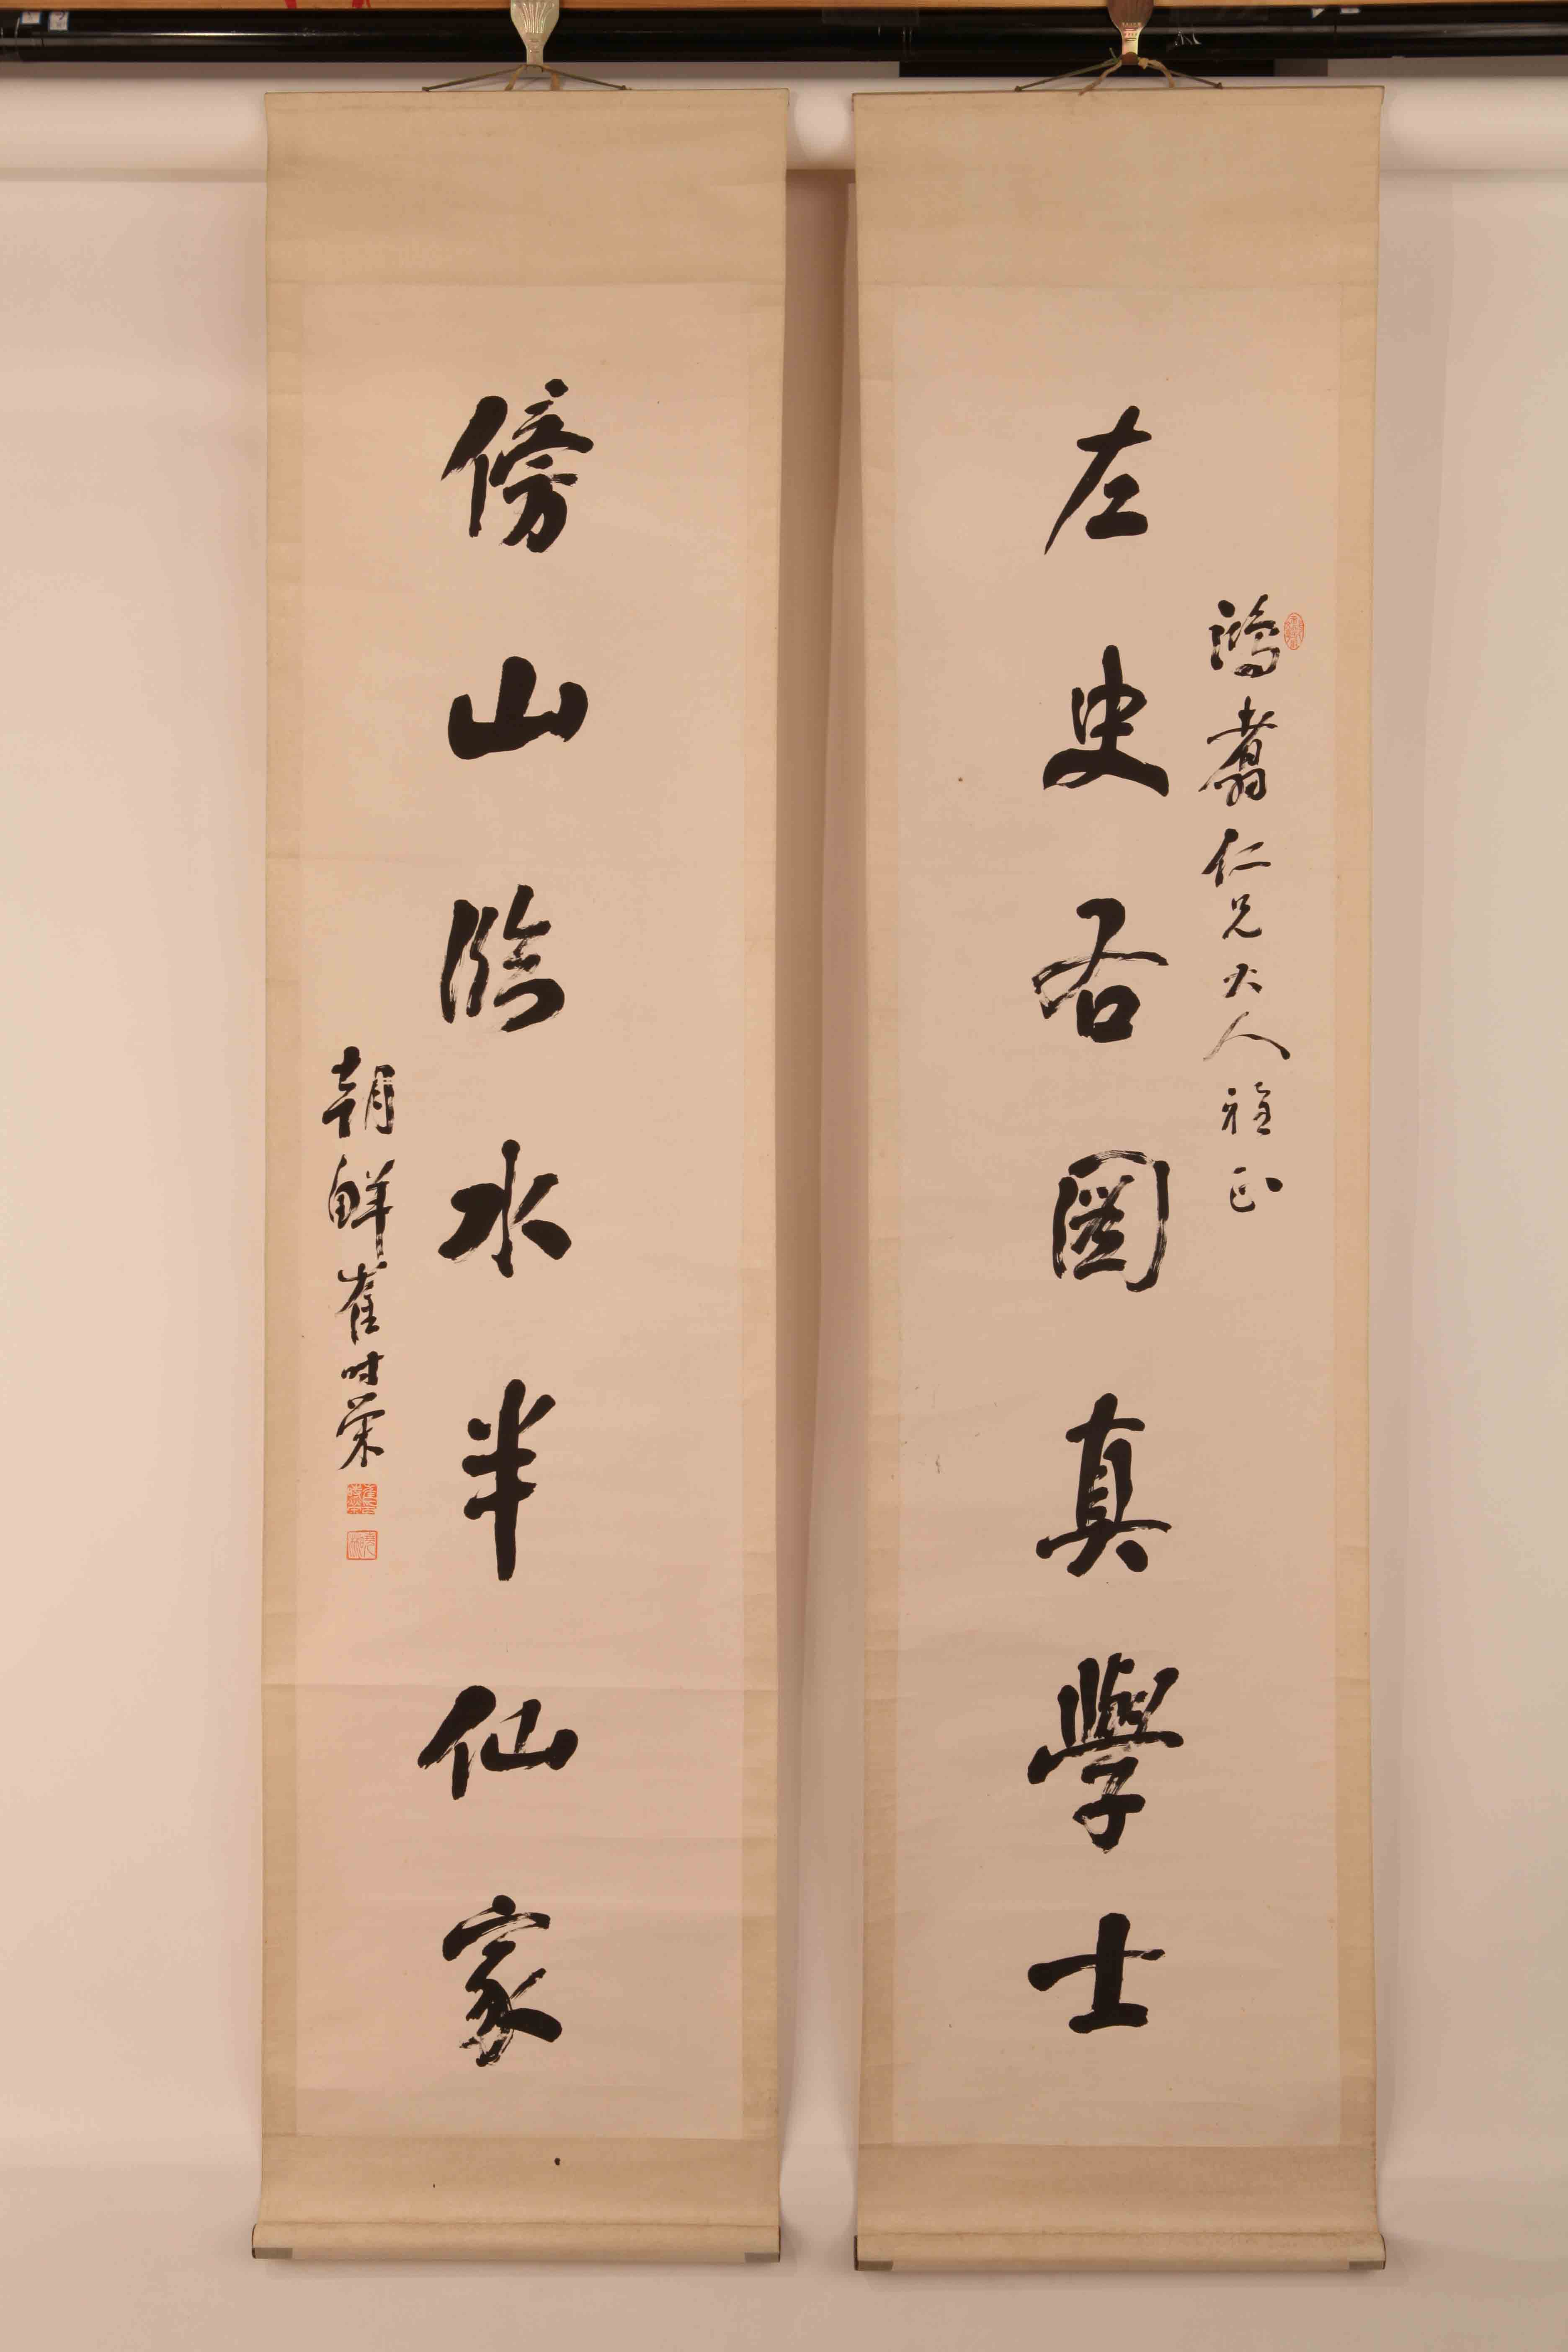 鴻翥仁兄大人雅正
左史右圖真學士
傍山臨水半仙家
朝鮮崔時榮